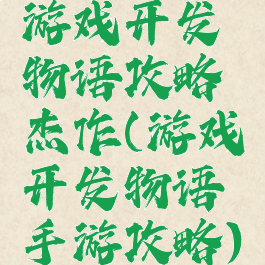 游戏开发
物语攻略
杰作(游戏
开发物语
手游攻略)